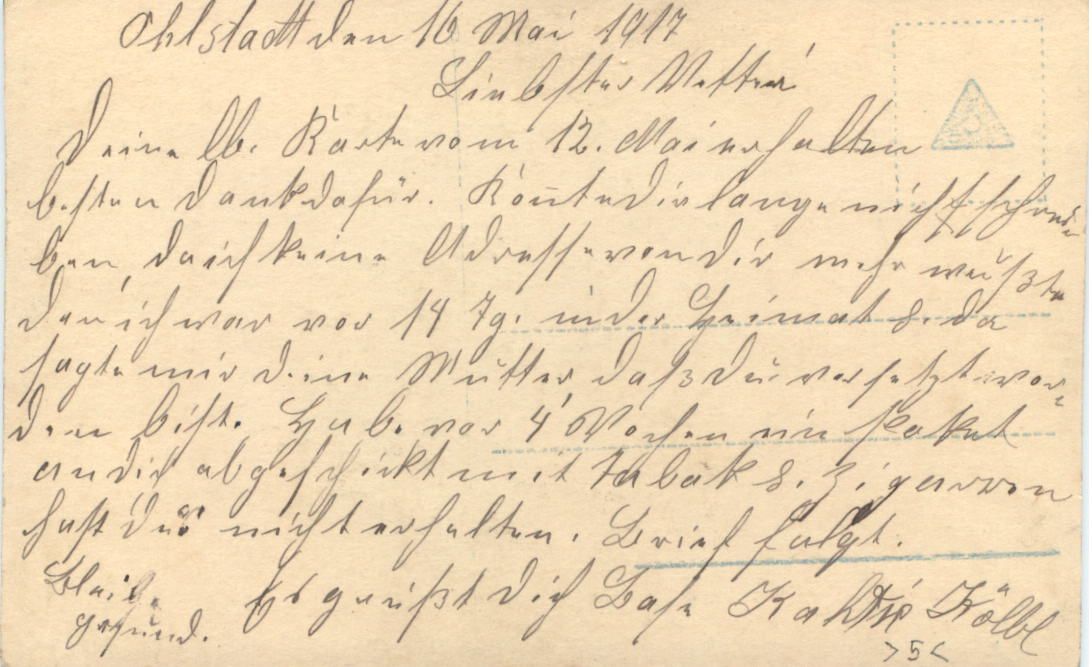 Ohlstadt den 16 Mai 1917
Liebster Vetter!
Deine lb. Karte vom 12. Mai erhalten
besten Dank dafür. Konnte dir lange nicht schrei-
ben, da ich keine Adresse von dir mehr wußte
den ich war vor 14 Tg. in der Heimat u. da
sagte mir deine Mutter daß du versetzt wor-
den bist. Habe vor 4 Wochen ein Paket
an dich abgeschickt mit Tabak u. Zigarren
hast du's nicht erhalten. Brief folgt.
Bleibe
gesund.
Es grüßt dich Base Kölbl
>5<